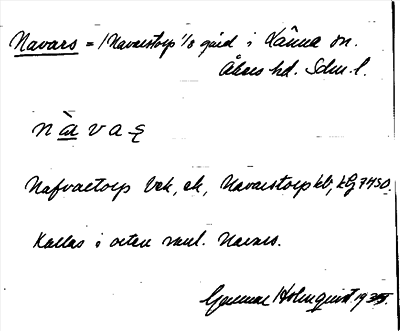 Navars = (Navarstorp 1/8 gård i Länna sn.
Åkers hd. Södm. l.
nàvaʂ
Nafvartorp Gek, ek, Navarstorp kb, hfl 7450.
Kallas i orten vanl. Navars.
Gunnar Holmquist 1935.